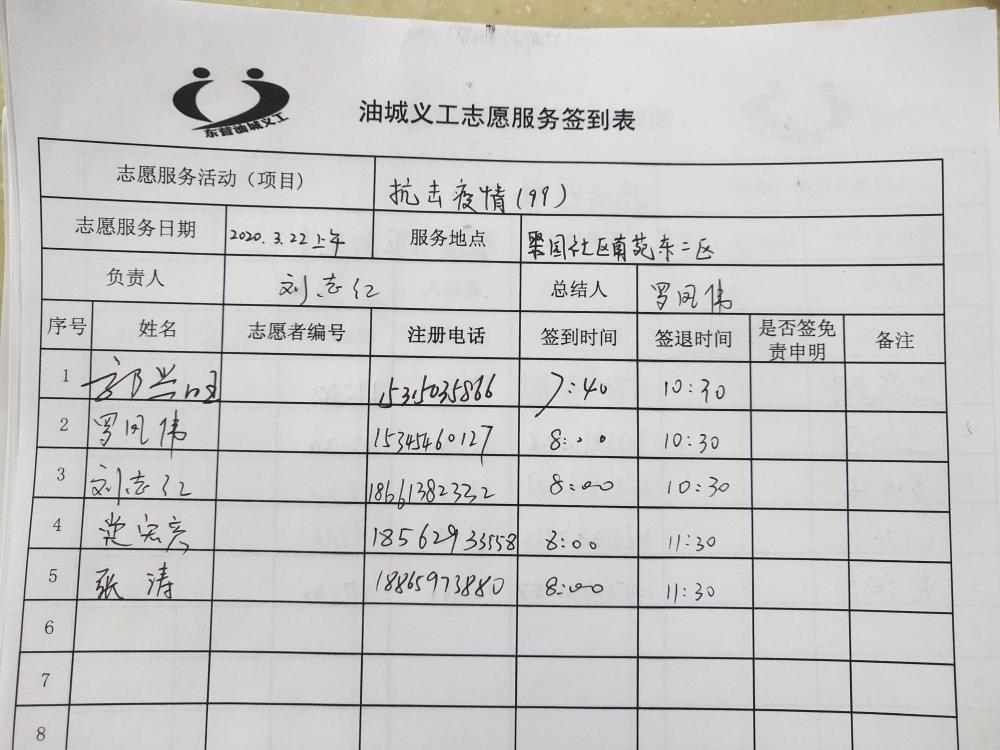 东营油城义工
油城义工志愿服务签到表
志愿服务活动（项目） 抗击疫情(99)
志愿服务日期 2020.3.22上午 服务地点 聚园社区南苑东二区
负责人 刘志仁 总结人 罗凤伟
序号 姓名 志愿者编号 注册电话 签到时间 签退时间 是否签免责申明 备注
1 15315035866 7:40 10:30
2 罗凤伟 15345460127 8:00 10:30
3 刘志仁 18661382332 8:00 10:30
4 18562933558 8:00 11:30
5 张涛 18865973880 8:00 11:30
6
7
8